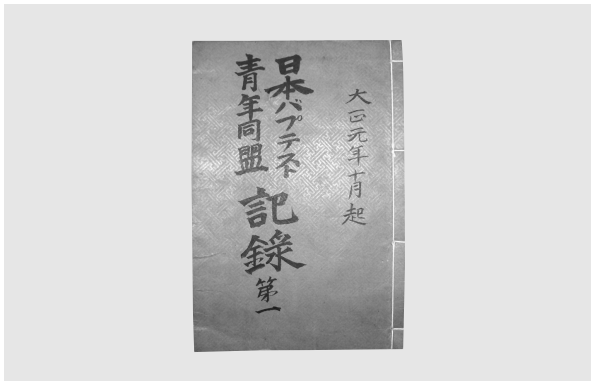 大正元年十月起
日本バプテスト
青年同盟
記録
第一